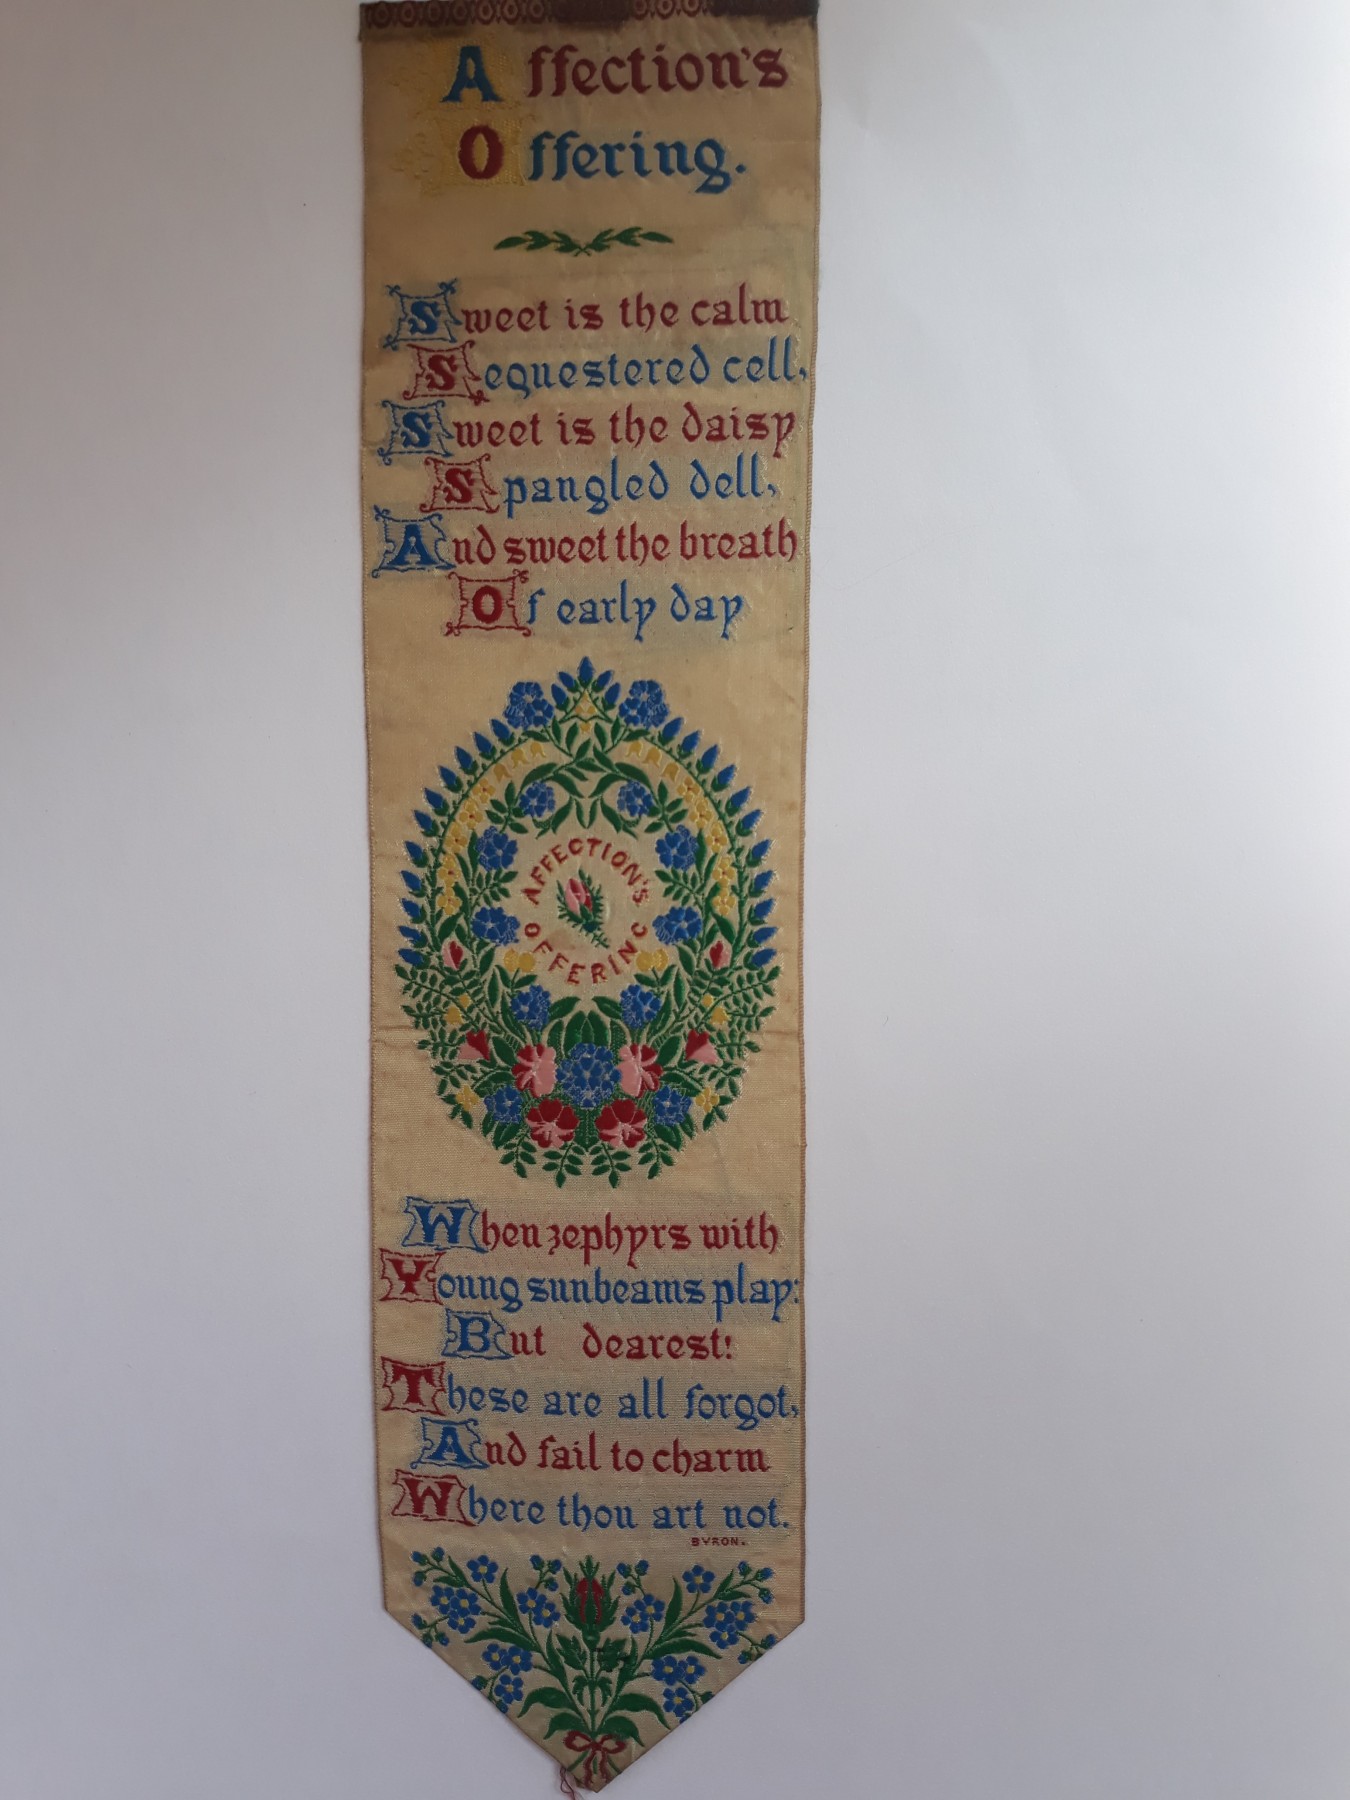 Affection's
Offering.
Sweet is the calm
Sequestered cell,
Sweet is the daisy
Spangled dell,
And sweet the breath
Of early day
AFFECTION'S
OFFERING
When zephyrs with
Young sunbeams play:
But dearest!
These are all forgot,
And fail to charm
Where thou art not.
BYRON.